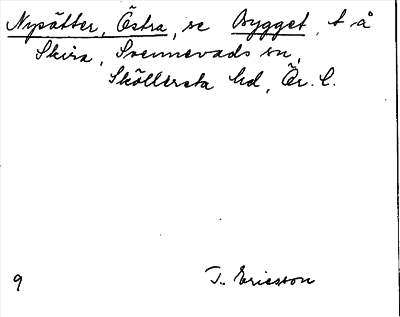 Nysätter, Östra, se Bygget, t å
Skira, Svennevads sn,
Sköllersta hd, Ör. l.
9 T. Ericsson